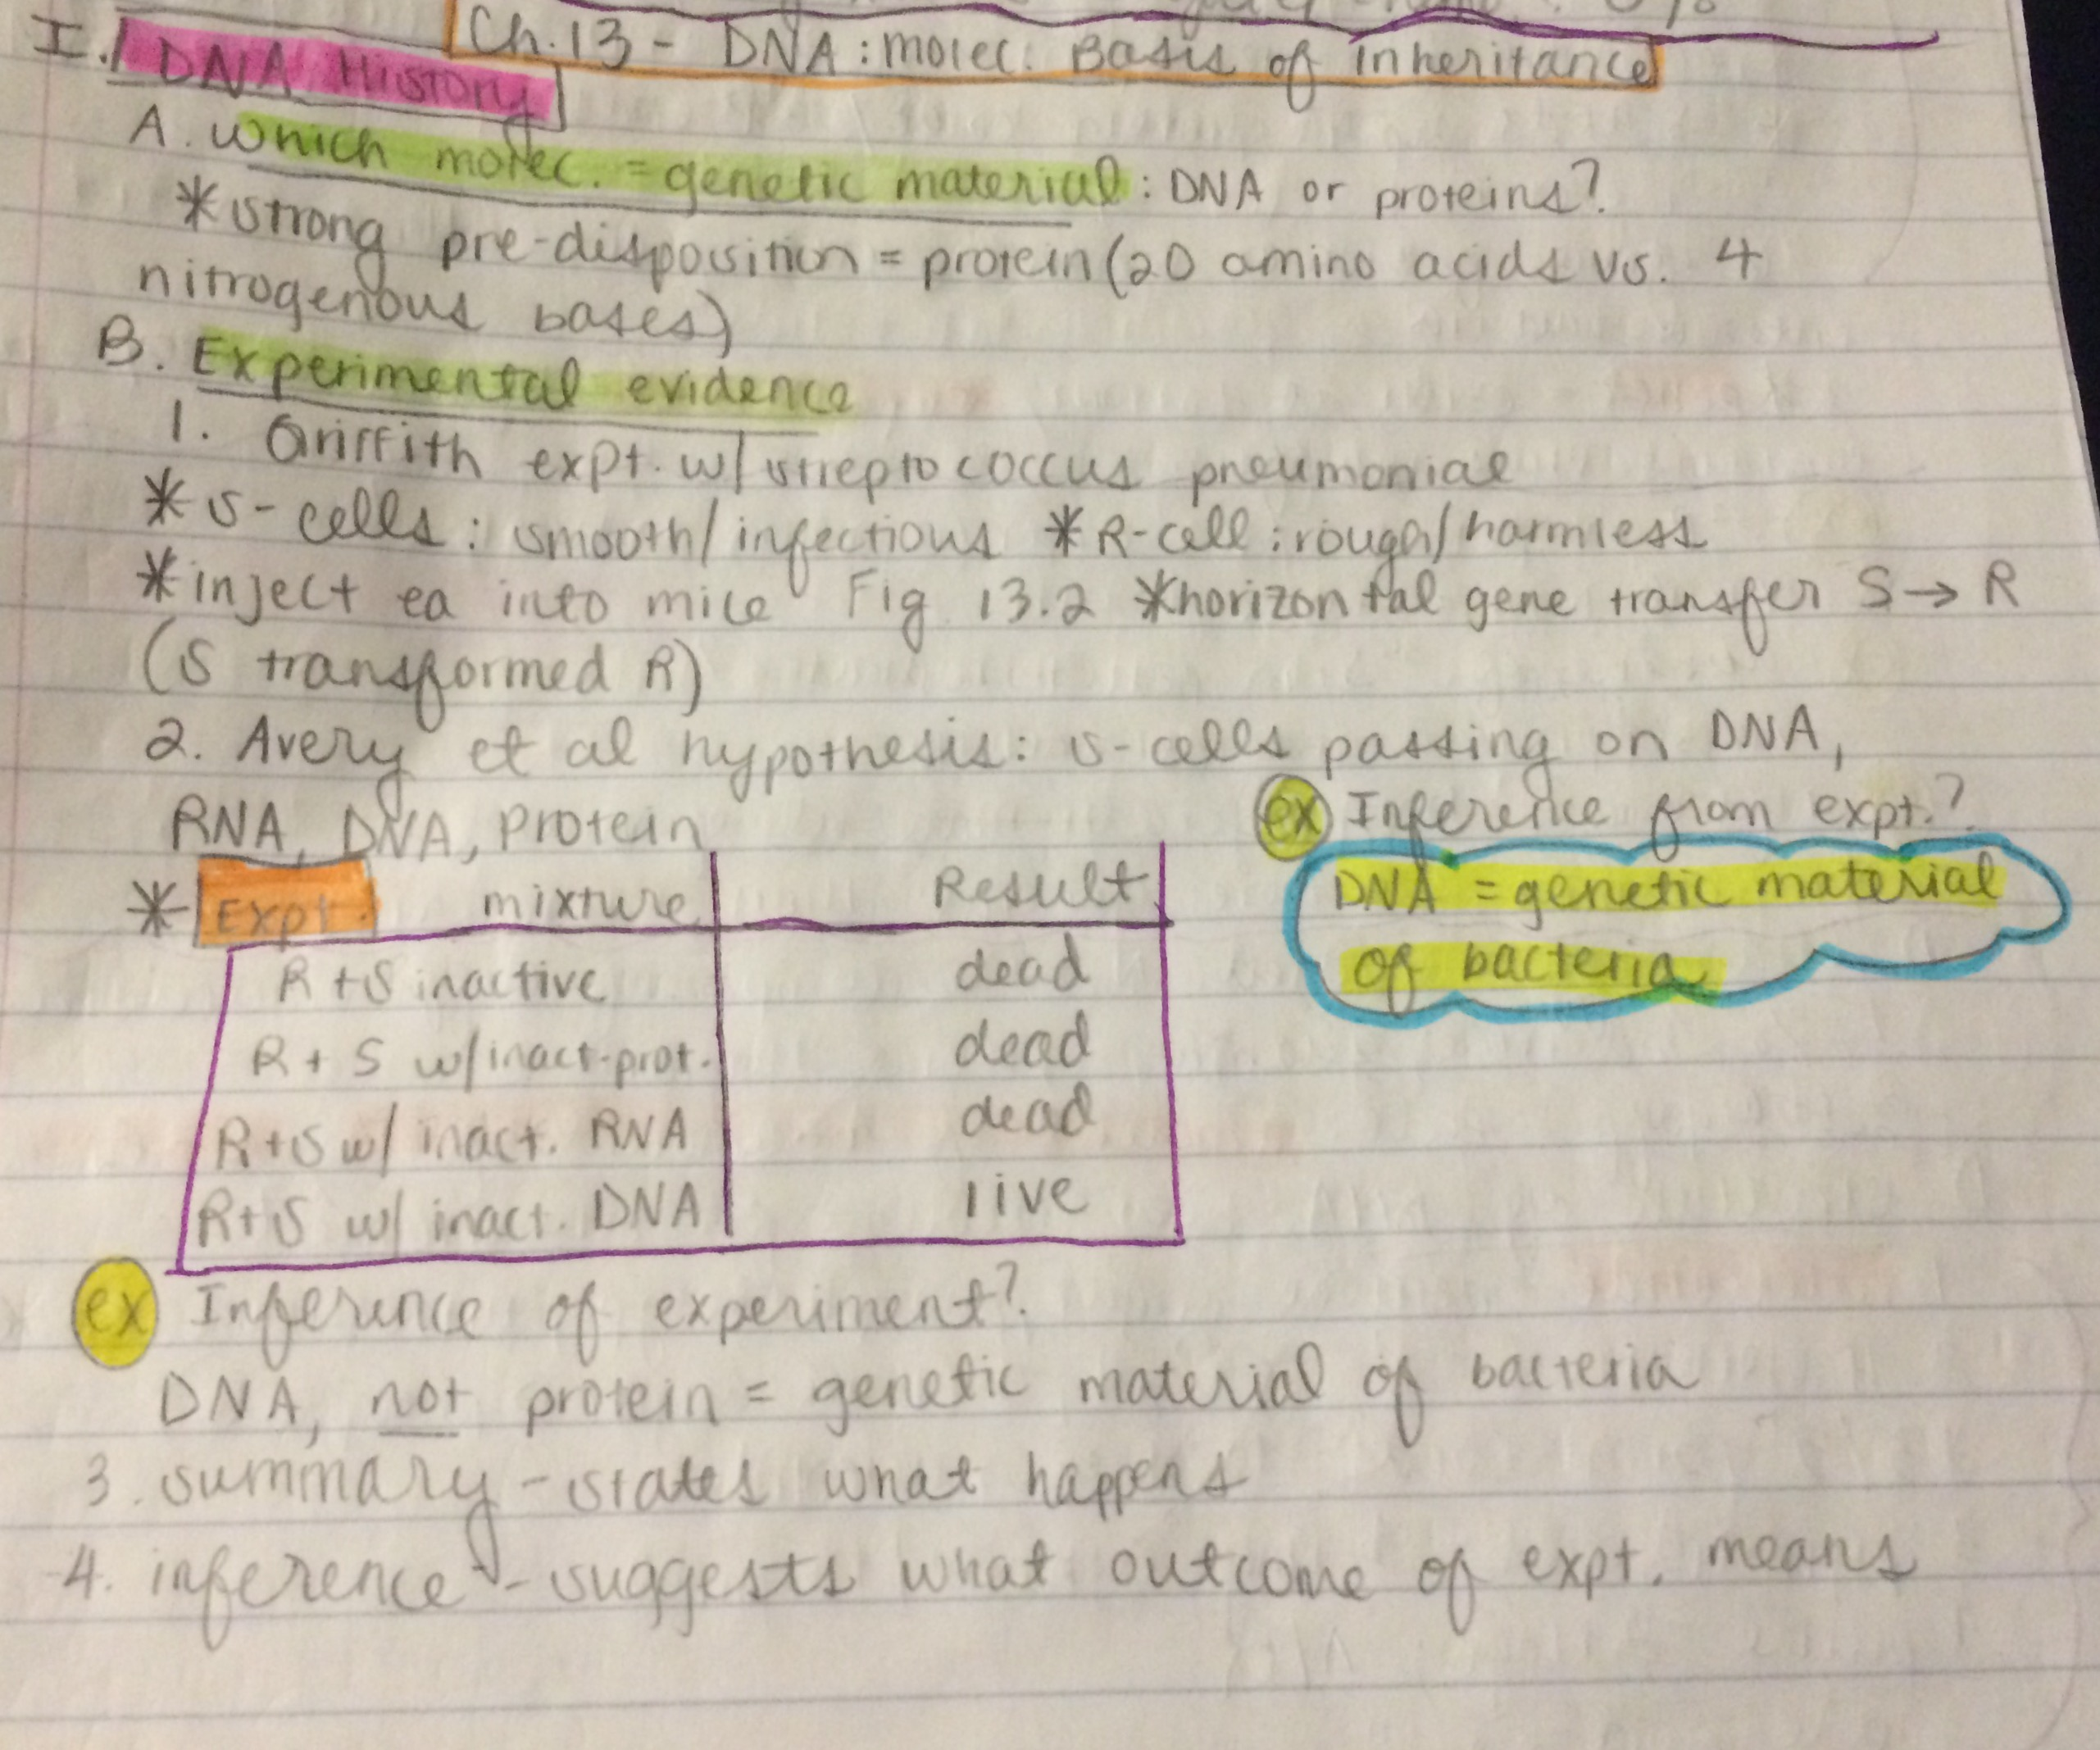 Ch.13 - DNA: molec. Basis of inheritance
I. DNA History
A. which molec. = genetic material: DNA or proteins?
*strong pre-disposition = protein (20 amino acids vs. 4
nitrogenous bases)
B. Experimental evidence
1. Griffith expt. w/ streptococcus pneumoniae
*S-cells: smooth/infectious *R-cell: rough/harmless
*inject ea into mice Fig 13.2 *horizontal gene transfer S→R
(S transformed R)
2. Avery et al hypothesis: S-cells passing on DNA,
RNA, DNA, protein
* Expt. mixture Result
R+S inactive dead
R + S w/inact-prot. dead
R+S w/ inact. RNA dead
R+S w/ inact. DNA live
ex Inference from expt.?
DNA = genetic material
of bacteria
ex Inference of experiment?
DNA, not protein = genetic material of bacteria
3. summary - states what happens
4. inference - suggests what outcome of expt. means